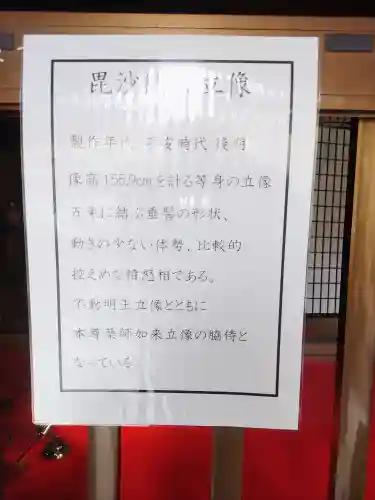 毘沙 立像
製作年代 平安時代 後期
像高155.9cmを計る等身の立像
方平に結ぶ垂髻の形状、
動きの少ない体勢、比較的
控えめな憤怒相である。
不動明王立像とともに
本尊薬師如来立像の脇侍と
なっている